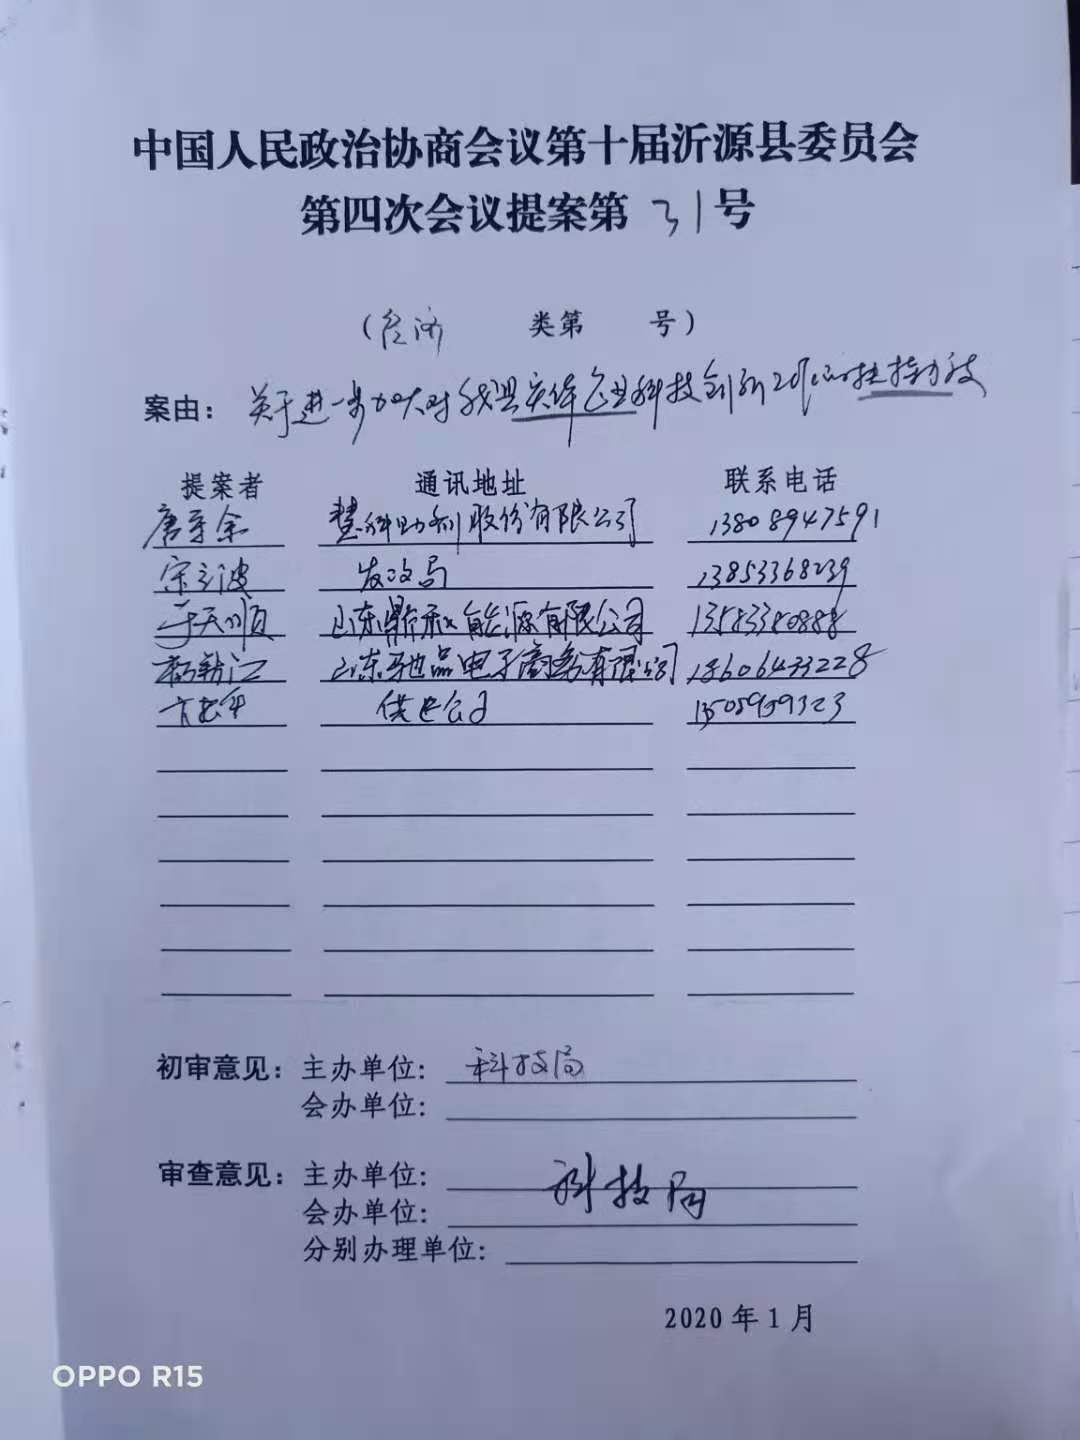 中国人民政治协商会议第十届沂源县委员会
第四次会议提案第 31 号
(经济 类第 号)
案由: 关于进一步加大对我县实体企业科技创新 扶持力度
提案者 通讯地址 联系电话
唐守余 慧科助剂股份有限公司 13808947591
宋立波 发改局 13853368239
于天顺 山东鼎 能源有限公司
山东驰品电子商务有限公司 18606433228
供电公司
初审意见: 主办单位: 科技局
会办单位:
审查意见: 主办单位: 科技局
会办单位:
分别办理单位:
2020 年 1 月
OPPO R15